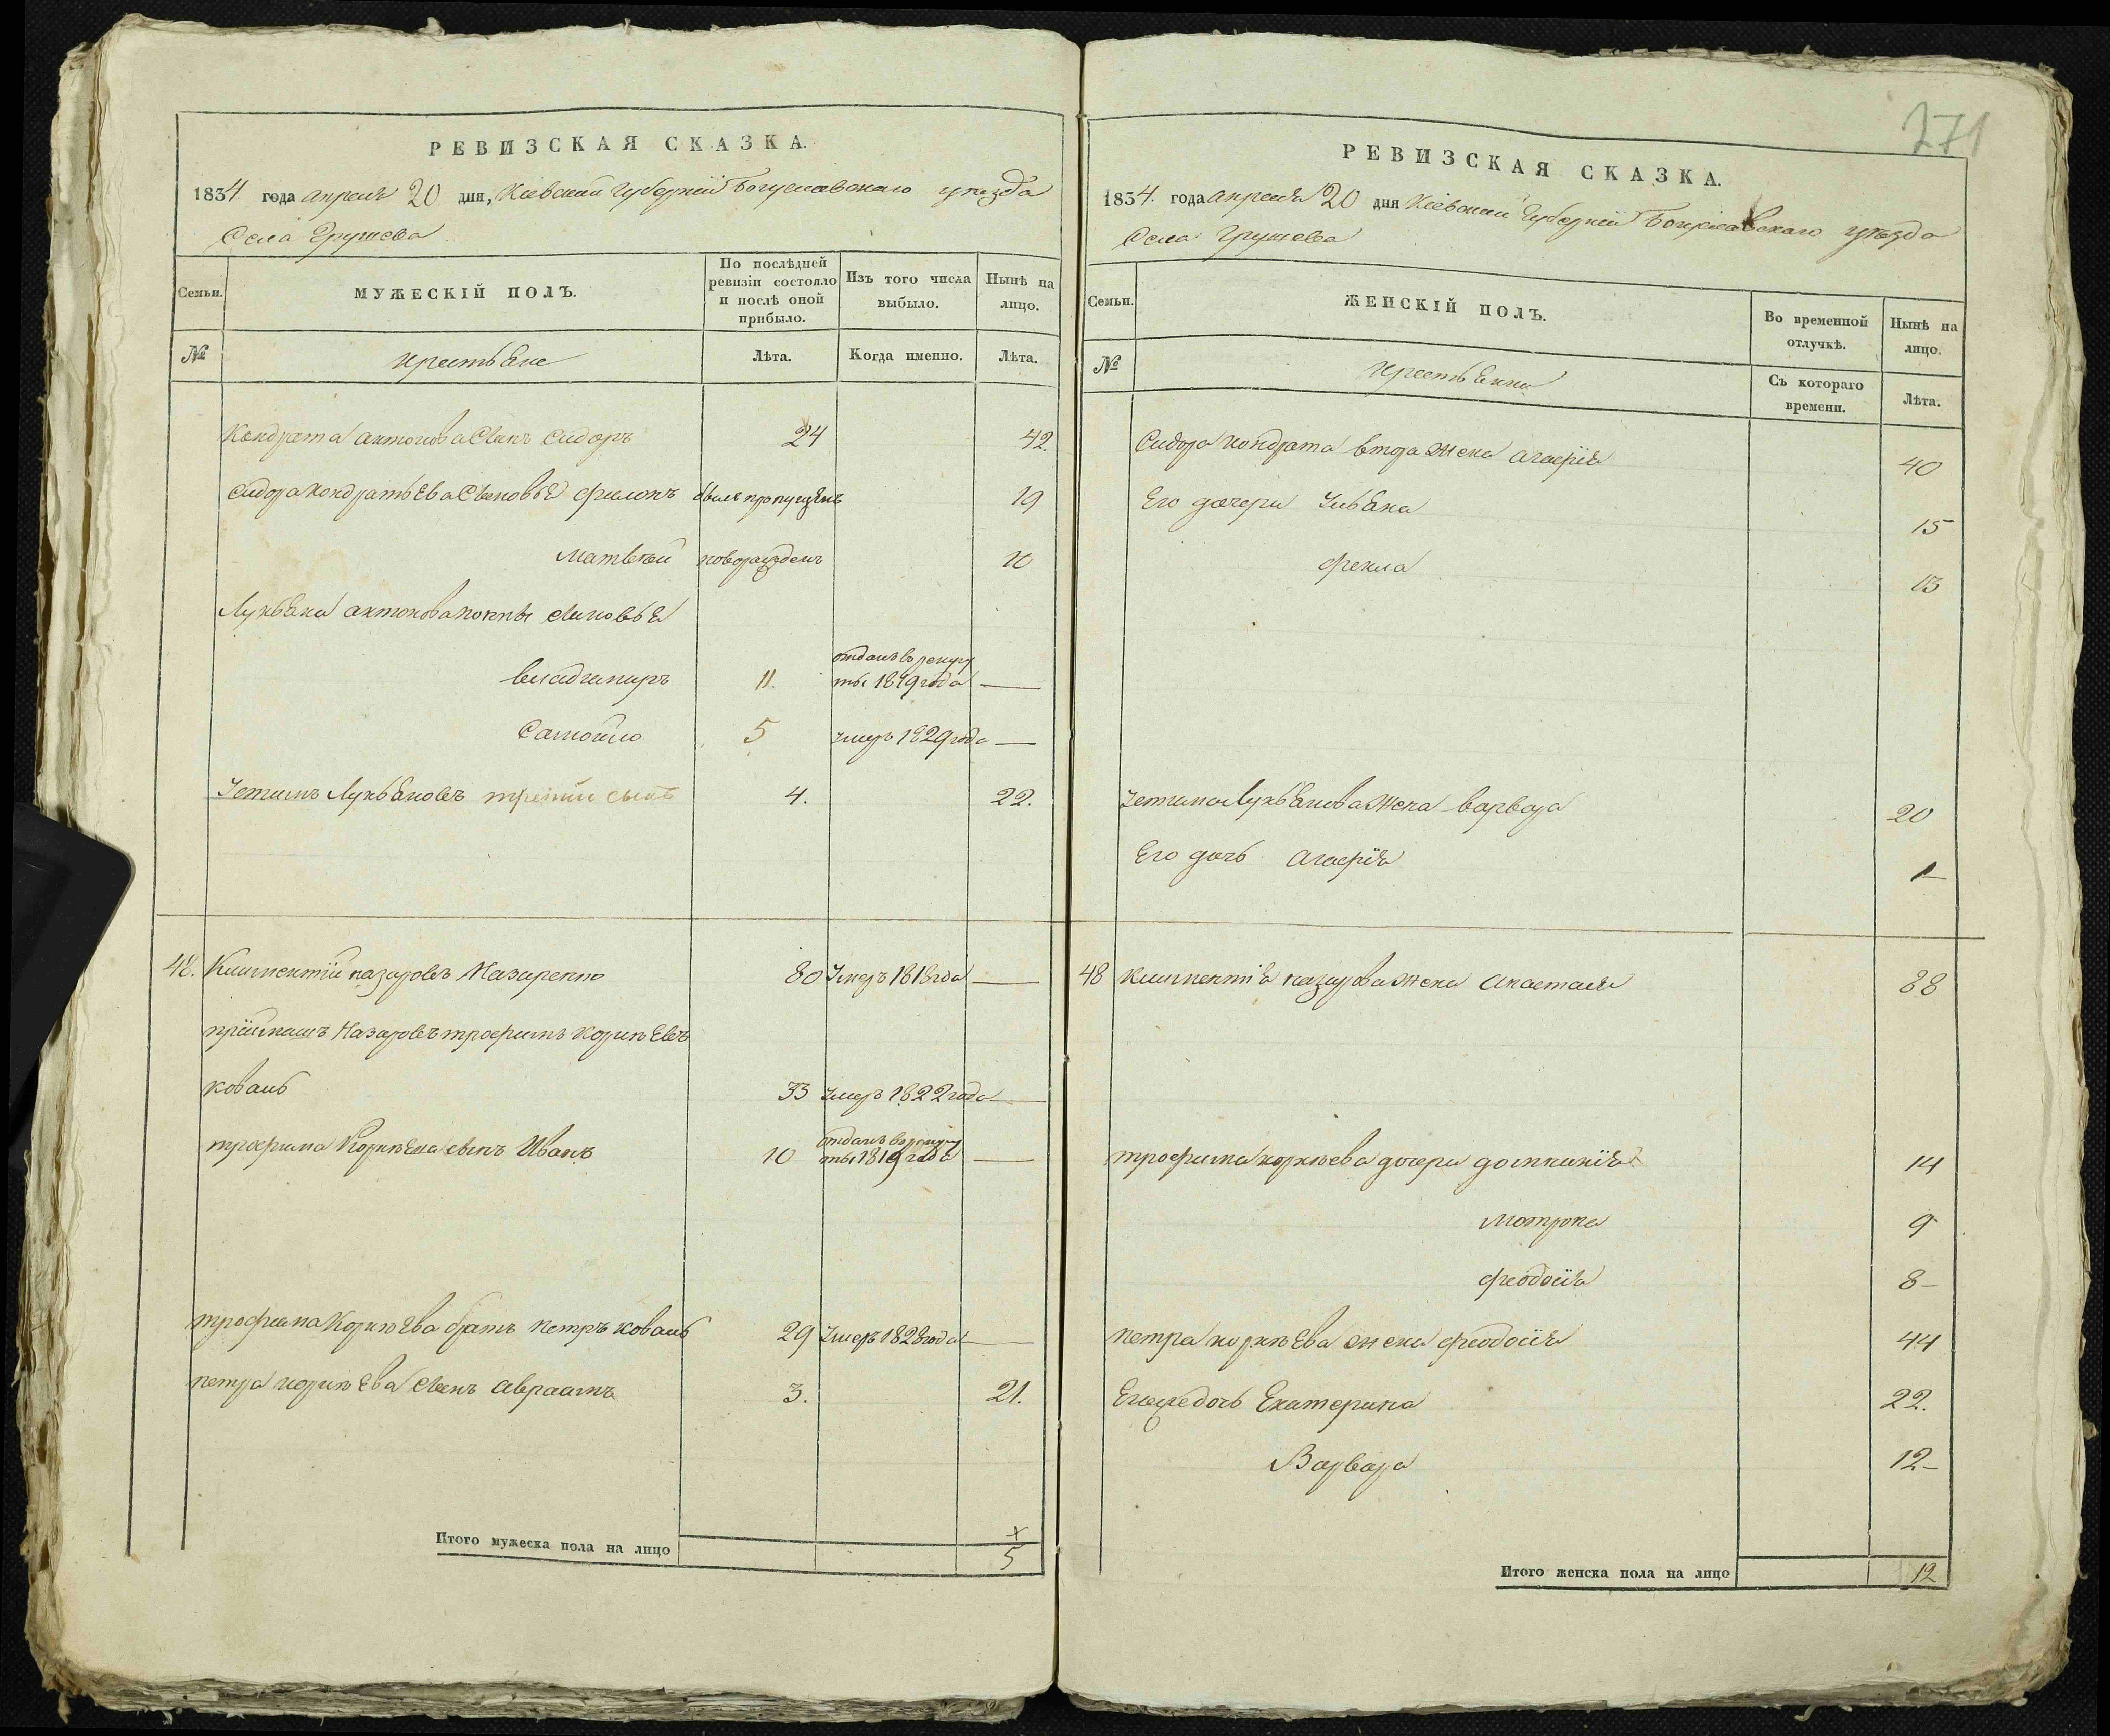 271
РЕВИЗСКАЯ СКАЗКА.
1834 года апреля 20 дня, Кіевской Губерніи Богуславскаго уѣзда
Села Грушева
Семьи.
МУЖЕСКІЙ ПОЛЪ.
По послѣдней ревизіи состояло и послѣ оной прибыло.
Изъ того числа выбыло.
Нынѣ на лицо.
№
крестьяне
Лѣта.
Когда именно.
Лѣта.
Кондрата антонова сынъ сидоръ 24 42.
сидора кондратьева сыновья филонъ былъ пропущенъ 19
Матвей новорожденъ 10
Лукьяна антонова сыновья
владимиръ 11. отданъ в рекру
ты 1819 года —
Самойло 5 умеръ 1829 года —
Устимъ Лукьяновъ третий сынъ 4. 22.
48. Климентій назаровъ Назаренко 80 умеръ 1818 года —
приймашъ Назаровъ трофимъ корнѣевъ
коваль 33 умеръ 1822 года —
трофима Корнѣева сынъ Иванъ 10 отданъ в рекру
ты 1819 года —
трофима Корнѣева братъ петръ коваль 29 умеръ 1828 года —
петра корнѣева сынъ авраамъ 3. 21.
Итого мужеска пола на лицо 5
РЕВИЗСКАЯ СКАЗКА.
1834. года апреля 20 дня Кіевской Губерніи Богуславскаго уѣзда
Села Грушева
Семьи.
ЖЕНСКІЙ ПОЛЪ.
Во временной отлучкѣ.
Нынѣ на лицо.
№
крестьянки
Съ котораго времени.
Лѣта.
Сидора кондрата втора жена агафія 40
Его дочери Ульяна 15
фекла 13
Устима Лукьянова жена варвара 20
Его дочь агафія 1
48 климентія назарова жена анастасія 88
трофима корнѣева дочери домникія 14
мотрона 9
феодосія 8
петра корнѣева жена феодосія 44
Его же дочь Екатерина 22.
Варвара 12
Итого женска пола на лицо 12